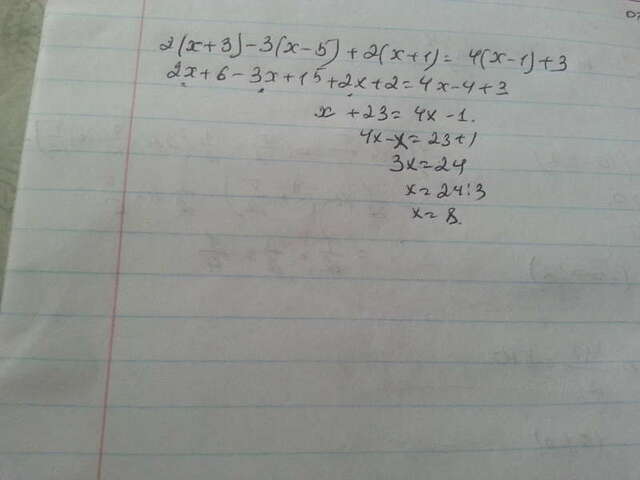 2(x+3)-3(x-5)+2(x+1)= 4(x-1)+3
2x+6-3x+15+2x+2=4x-4+3
x +23= 4x-1.
4x-x=23+1
3x=24
x=24:3
x=8.